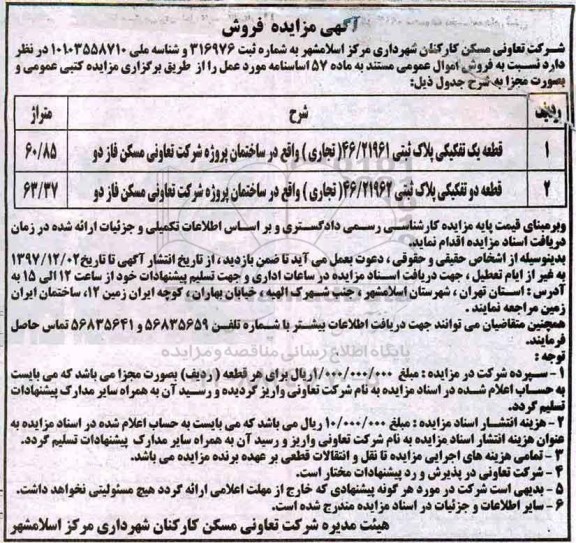 آگهی مزایده فروش
شرکت تعاونی مسکن کارکنان شهرداری مرکز اسلامشهر به شماره ثبت ۳۱۶۹۷۶ و شناسه ملی ۱۰۱۰۳۵۵۸۷۱۰ در نظر
دارد نسبت به فروش اموال عمومی مستند به ماده ۵۷ اساسنامه مورد عمل را از طریق برگزاری مزایده کتبی عمومی و
بصورت مجزا به شرح جدول ذیل:
ردیف شرح متراژ
۱ قطعه یک تفکیکی پلاک ثبتی ۴۶/۲۱۹۶۱( تجاری ) واقع در ساختمان پروژه شرکت تعاونی مسکن فاز دو ۶۰/۸۵
۲ قطعه دو تفکیکی پلاک ثبتی ۴۶/۲۱۹۶۲( تجاری ) واقع در ساختمان پروژه شرکت تعاونی مسکن فاز دو ۶۳/۳۷
وبرمبنای قیمت پایه مزایده کارشناسی رسمی دادگستری و بر اساس اطلاعات تکمیلی و جزئیات ارائه شده در زمان
دریافت اسناد مزایده اقدام نماید.
بدینوسیله از اشخاص حقیقی و حقوقی ، دعوت بعمل می آید تا ضمن بازدید ، از تاریخ انتشار آگهی تا تاریخ ۱۳۹۷/۱۲/۰۲
به غیر از ایام تعطیل ، جهت دریافت اسناد مزایده در ساعات اداری و جهت تسلیم پیشنهادات خود از ساعت ۱۲ الی ۱۵ به
آدرس : استان تهران ، شهرستان اسلامشهر ، جنت شهرک الهیه ، خیابان بهاران ، کوچه ایران زمین ۱۲، ساختمان ایران
زمین مراجعه نمایند .
همچنین متقاضیان می توانند جهت دریافت اطلاعات بیشتر با شماره تلفن ۵۶۸۳۵۶۵۹ و ۵۶۸۳۵۶۴۱ تماس حاصل
فرمایند.
توجه :
۱- سپرده شرکت در مزایده : مبلغ ۱/۰۰۰/۰۰۰/۰۰۰ریال برای هر قطعه ( ردیف) بصورت مجزا می باشد که می بایست
به حساب اعلام شده در اسناد مزایده به نام شرکت تعاونی واریز گردیده و رسید آن به همراه سایر مدارک پیشنهادات
تسلیم گردد.
۲- هزینه انتشار اسناد مزایده : مبلغ ۱۰/۰۰۰/۰۰۰ ریال می باشد که می بایست به حساب اعلام شده در اسناد مزایده به
عنوان هزینه انتشار اسناد مزایده به نام شرکت تعاونی واریز و رسید آن به همراه سایر مدارک پیشنهادات تسلیم گردد.
۳- تمامی هزینه های اجرایی مزایده تا نقل و انتقالات قطعی بر عهده برنده مزایده می باشد.
۴- شرکت تعاونی در پذیرش و رد پیشنهادات مختار است.
۵- بدیهی است شرکت در مورد هر گونه پیشنهادی که خارج از مهلت اعلامی ارائه گردد هیچ مسئولیتی نخواهد داشت.
۶- سایر اطلاعات و جزئیات در اسناد مزایده مندرج شده است.
هیئت مدیره شرکت تعاونی مسکن کارکنان شهرداری مرکز اسلامشهر